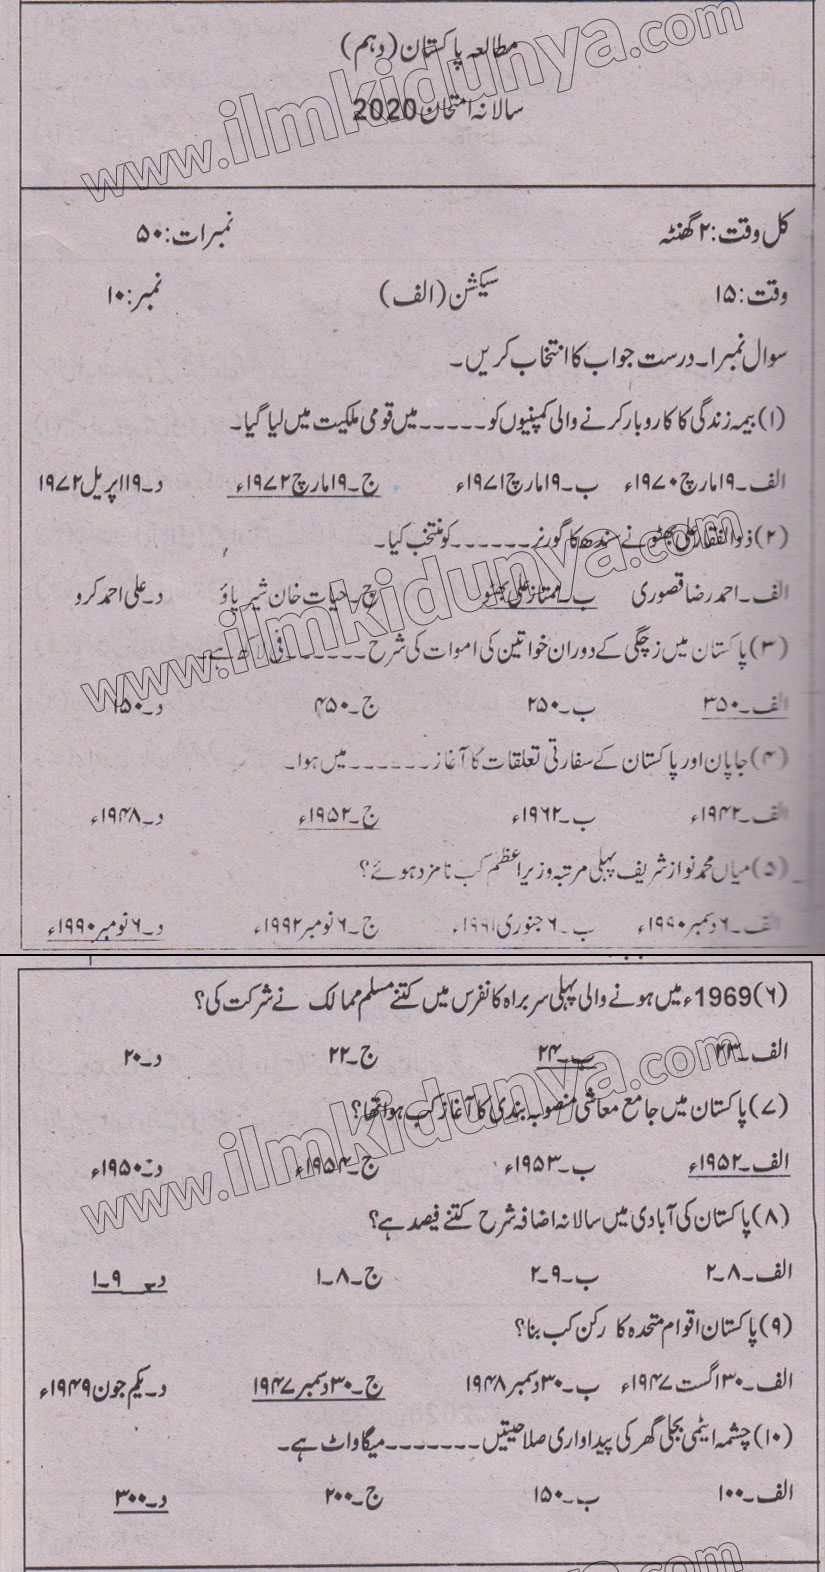 مطالعہ پاکستان (دہم)
سالانہ امتحان 2020
www.ilmkidunya.com
کل وقت: ۲ گھنٹہ نمبرات: ۵۰
وقت: ۱۵ سیکشن (الف) نمبر: ۱۰
سوال نمبر۱۔ درست جواب کا انتخاب کریں۔
(۱) بیمہ زندگی کا کاروبار کرنے والی کمپنیوں کو ۔۔۔۔۔ میں قومی ملکیت میں لیا گیا۔
الف۔ ۱۹ مارچ ۱۹۷۰ء ب۔ ۱۹ مارچ ۱۹۷۱ء ج۔ ۱۹ مارچ ۱۹۷۲ء د۔ ۱۹ اپریل ۱۹۷۲
(۲) ذوالفقار علی بھٹو نے سندھ کا گورنر ۔۔۔۔۔۔ کو منتخب کیا۔
الف۔ احمد رضا قصوری ب۔ ممتاز علی بھٹو ج۔ حیات خان شیر پاؤ د۔ علی احمد کرو
(۳) پاکستان میں زچگی کے دوران خواتین کی اموات کی شرح ۔۔۔۔۔۔ فی لاکھ ہے۔
الف۔ ۳۵۰ ب۔ ۲۵۰ ج۔ ۴۵۰ د۔ ۱۵۰
(۴) جاپان اور پاکستان کے سفارتی تعلقات کا آغاز ۔۔۔۔۔۔ میں ہوا۔
الف۔ ۱۹۴۲ء ب۔ ۱۹۶۲ء ج۔ ۱۹۵۲ء د۔ ۱۹۴۸ء
(۵) میاں محمد نواز شریف پہلی مرتبہ وزیر اعظم کب نامزد ہوئے؟
الف۔ ۶ دسمبر ۱۹۹۰ء ب۔ ۶ جنوری ۱۹۹۱ء ج۔ ۶ نومبر ۱۹۹۲ء د۔ ۶ نومبر ۱۹۹۰ء
(۶) 1969ء میں ہونے والی پہلی سربراہ کانفرس میں کتنے مسلم ممالک نے شرکت کی؟
الف۔ ۲۳ ب۔ ۲۴ ج۔ ۲۲ د۔ ۲۰
(۷) پاکستان میں جامع معاشی منصوبہ بندی کا آغاز کب ہوا تھا؟
الف۔ ۱۹۵۲ء ب۔ ۱۹۵۳ء ج۔ ۱۹۵۴ء د۔ ۱۹۵۰ء
(۸) پاکستان کی آبادی میں سالانہ اضافہ شرح کتنے فیصد ہے؟
الف۔ ۸۔۲ ب۔ ۹۔۲ ج۔ ۸۔۱ د۔ ۹۔۱
(۹) پاکستان اقوام متحدہ کا رکن کب بنا؟
الف۔ ۳۰ اگست ۱۹۴۷ء ب۔ ۳۰ دسمبر ۱۹۴۸ ج۔ ۳۰ دسمبر ۱۹۴۷ د۔ یکم جون ۱۹۴۹ء
(۱۰) چشمہ ایٹمی بجلی گھر کی پیداواری صلاحیتیں ۔۔۔۔۔۔۔ میگاواٹ ہے۔
الف۔ ۱۰۰ ب۔ ۱۵۰ ج۔ ۲۰۰ د۔ ۳۰۰